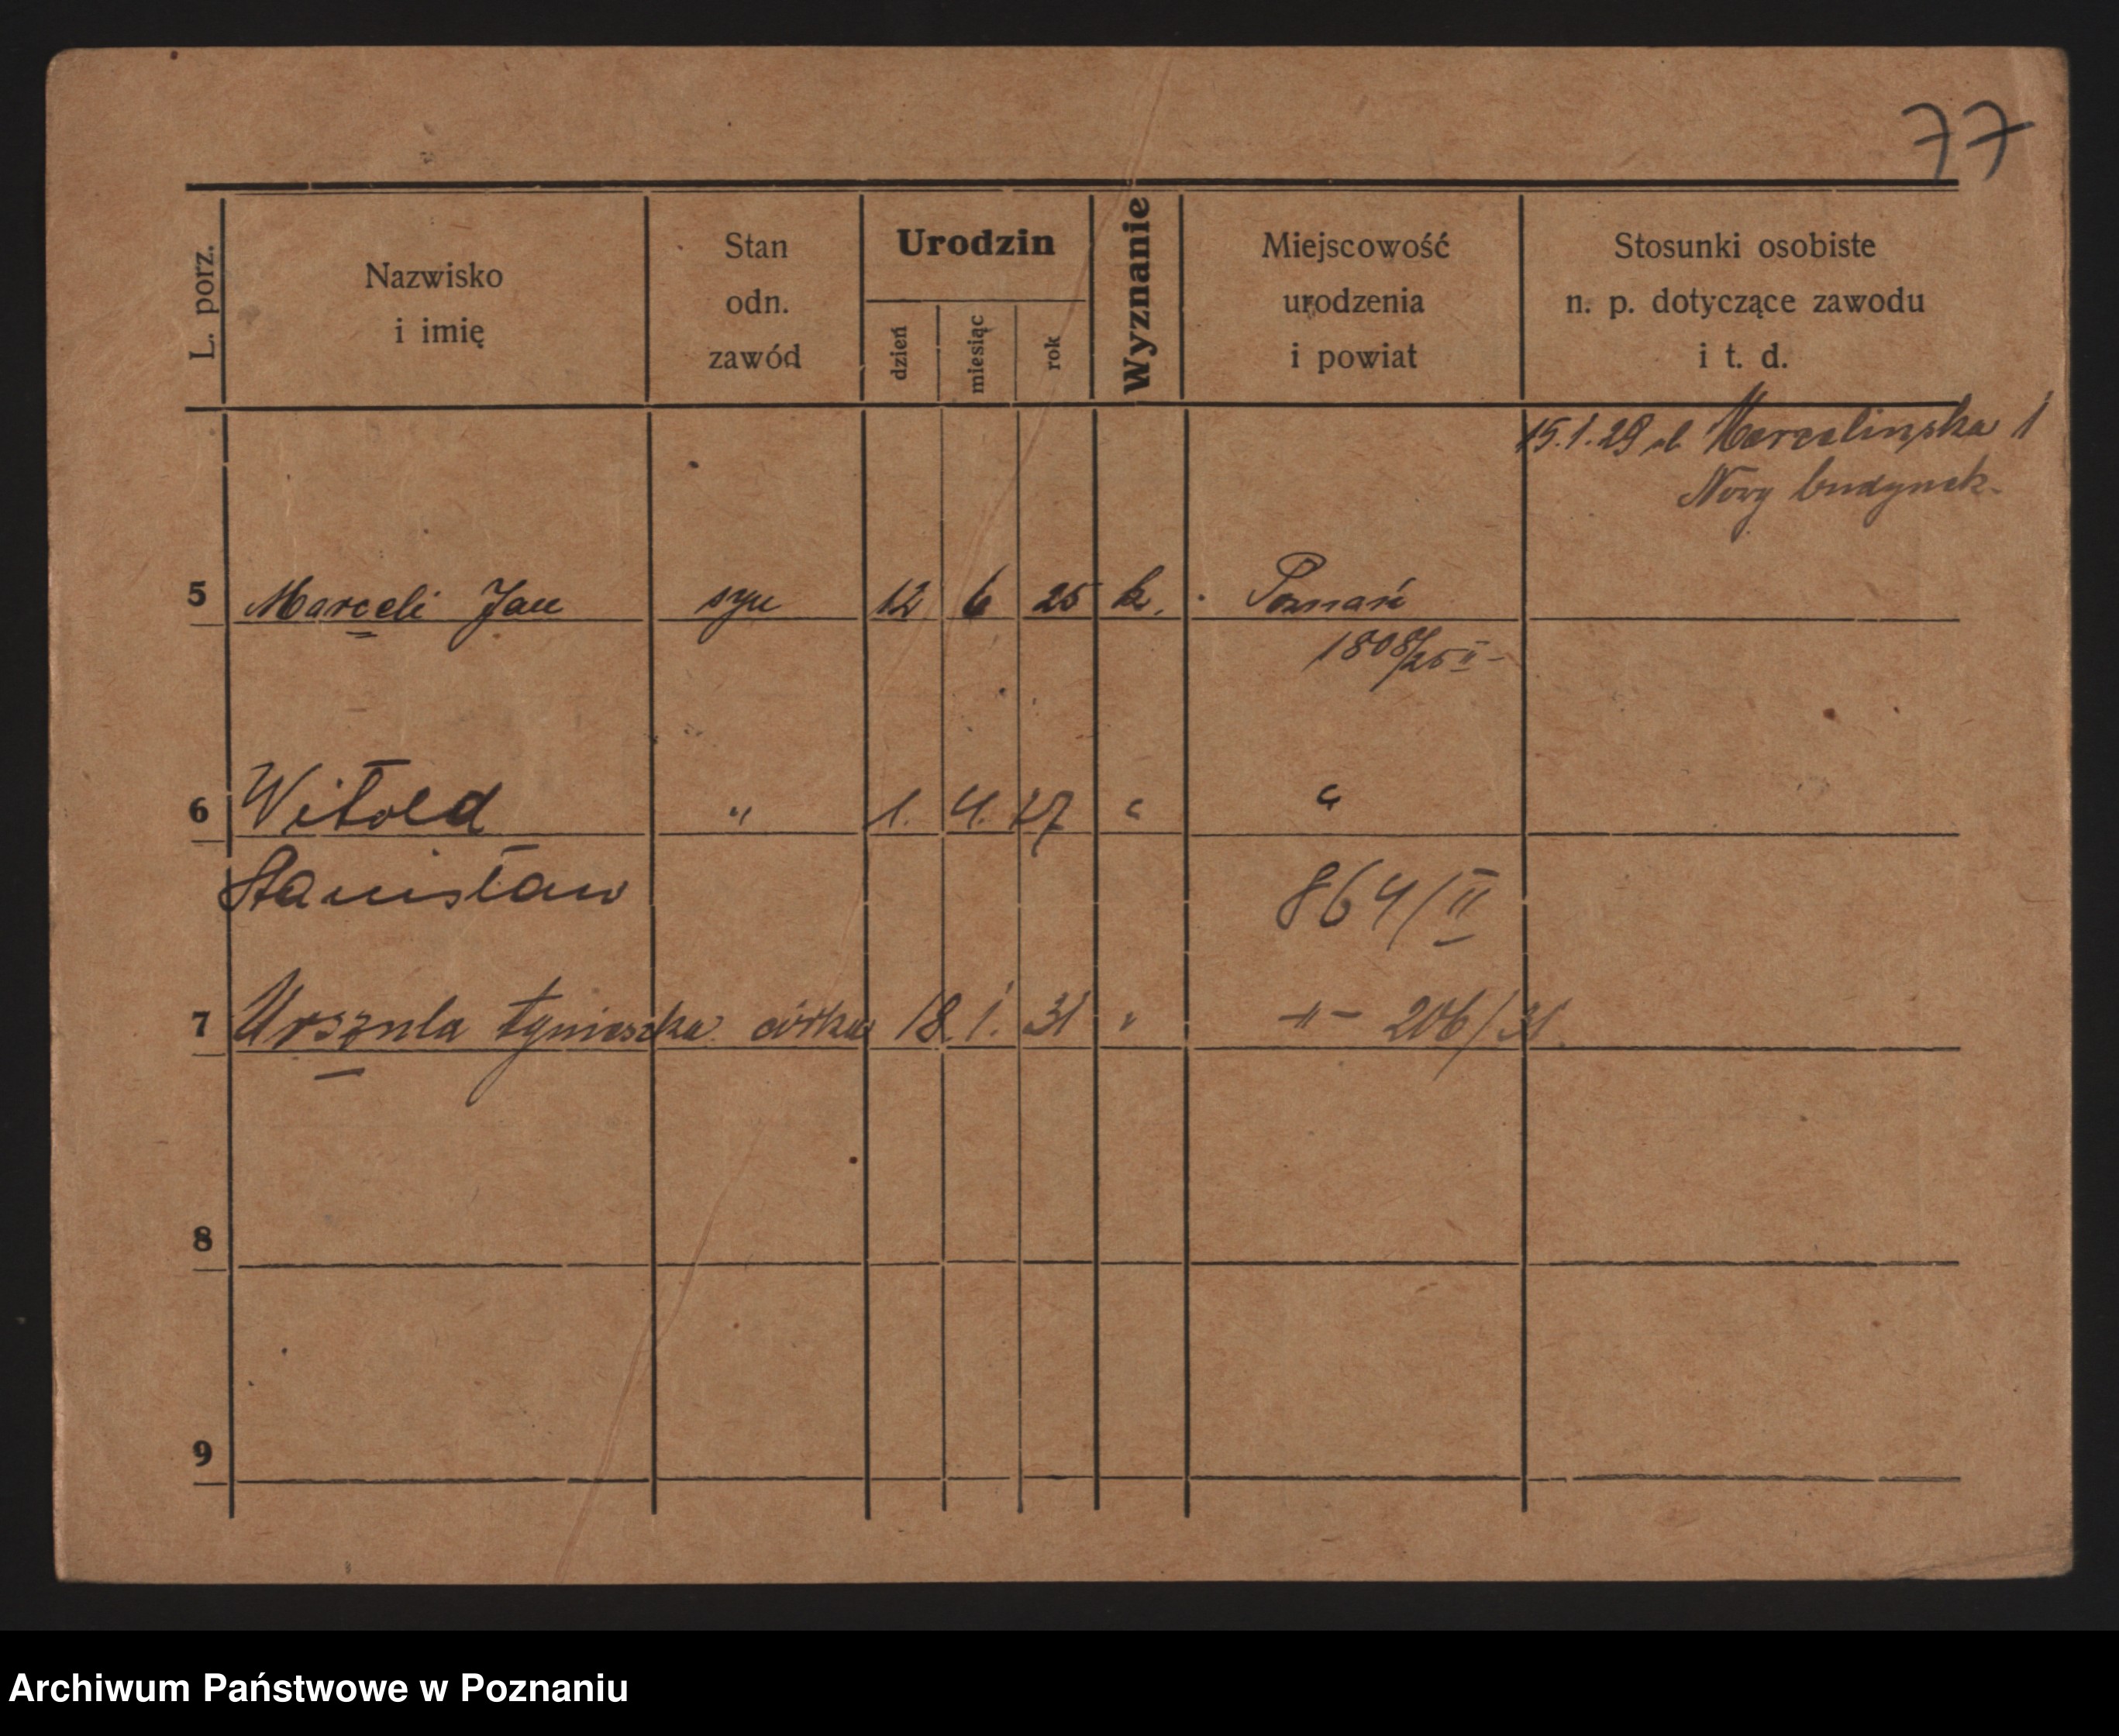 77
L. porz.
Nazwisko
i imię
Stan
odn.
zawód
Urodzin
dzień
miesiąc
rok
Wyznanie
Miejscowość
urodzenia
i powiat
Stosunki osobiste
n. p. dotyczące zawodu
i t. d.
15.1.29 ul Marcelinska 1
Nowy budynek.
5 Marceli Jan syn 12 6 25 k. Poznań
1808/25 II -
6 Witold " 1. 4. 27 " "
Stanisław 864/II
7 Urszula Agnieszka córka 18 1. 31 " -"- 206/31
8
9
Archiwum Państwowe w Poznaniu